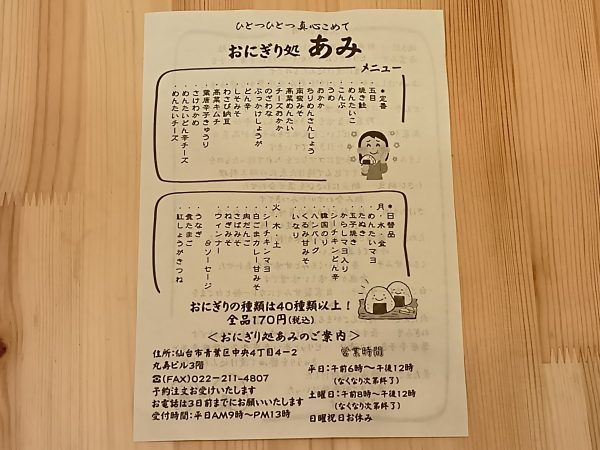 ひとつひとつ真心こめて
おにぎり処 あみ
メニュー
●定番
・五目
・焼き鮭
・めんたいこ
・こんぶ
・うめ
・おかか
・ちりめんさんしょう
・南蛮みそ
・高菜めんたい
・チーズおかか
・のざわな
・ぶっかけしょうが
・どん辛
・しそみそ
・わさび納豆
・高菜キムチ
・葉唐辛子きゅうり
・さけわかめ
・めんたいどん辛チーズ
・めんたいチーズ
●日替品
月・水・金
・めんたいマヨ
・たぬき
・玉子焼き
・からしマヨ入り
・シーチキンどん辛
・韓国のり
・ハンバーグ
・くるみ甘みそ
・いなり
火・木・土
・シーチキンマヨ
・白ごまカレー甘みそ
・肉だんご
・さばみそ
・ねぎみそ
・ウィンナー
&ソーセージ
・うなぎ
・煮たまご
・紅しょうがきつね
おにぎりの種類は40種類以上！
全品170円(税込)
＜おにぎり処あみのご案内＞
住所：仙台市青葉区中央4丁目4-2
丸寿ビル3階
☎(FAX)022-211-4807
予約注文お受けいたします
お電話は3日前までにお願いいたします
受付時間：平日AM9時～PM13時
営業時間
平日：午前6時～午後12時
(なくなり次第終了)
土曜日：午前8時～午後12時
(なくなり次第終了)
日曜祝日お休み